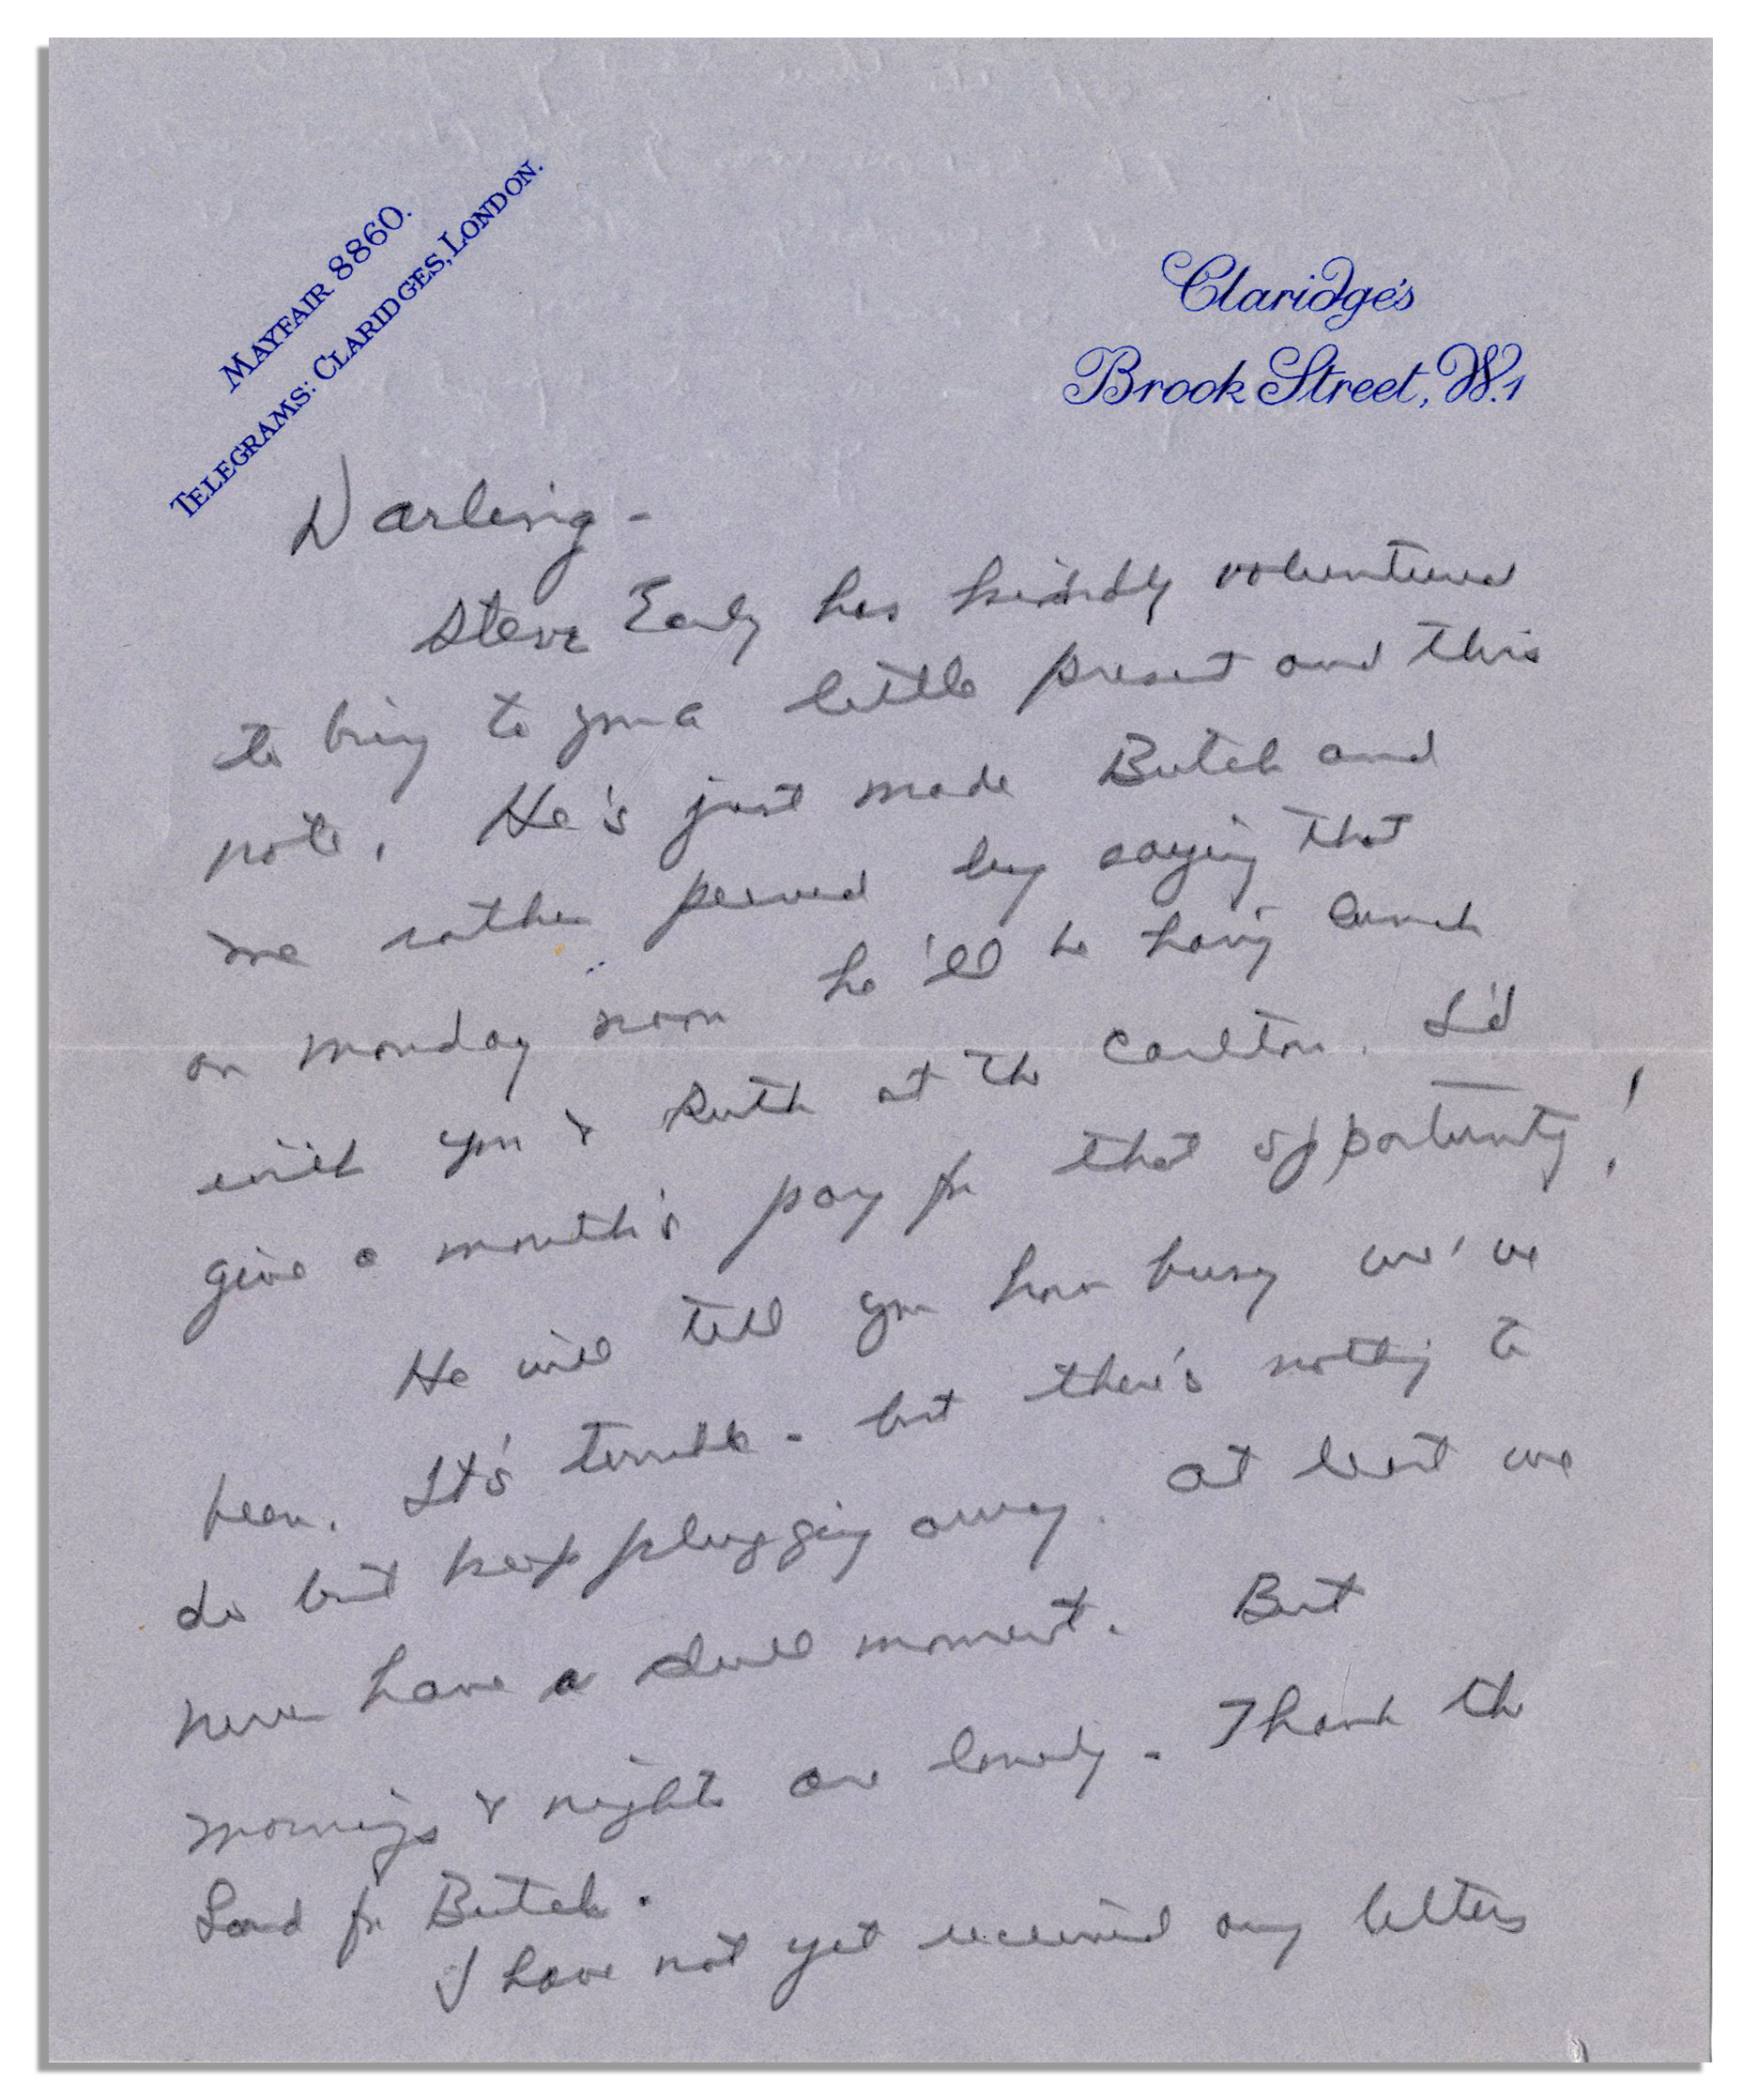 MAYFAIR 8860.
TELEGRAMS: CLARIDGES, LONDON.
Claridge's
Brook Street, W.1
Darling -
Steve Early has kindly volunteered
to bring to you a little present and this
note. He's just made Butch and
me rather peeved by saying that
on Monday noon he'll be having lunch
with you & Ruth at the Carlton. I'd
give a month's pay for that opportunity!
He will tell you how busy we've
been. It's terrible - but there's nothing to
do but keep plugging away. At least we
never have a dull moment. But
mornings & nights are lonely - Thank the
Lord for Butch.
I have not yet received any letters